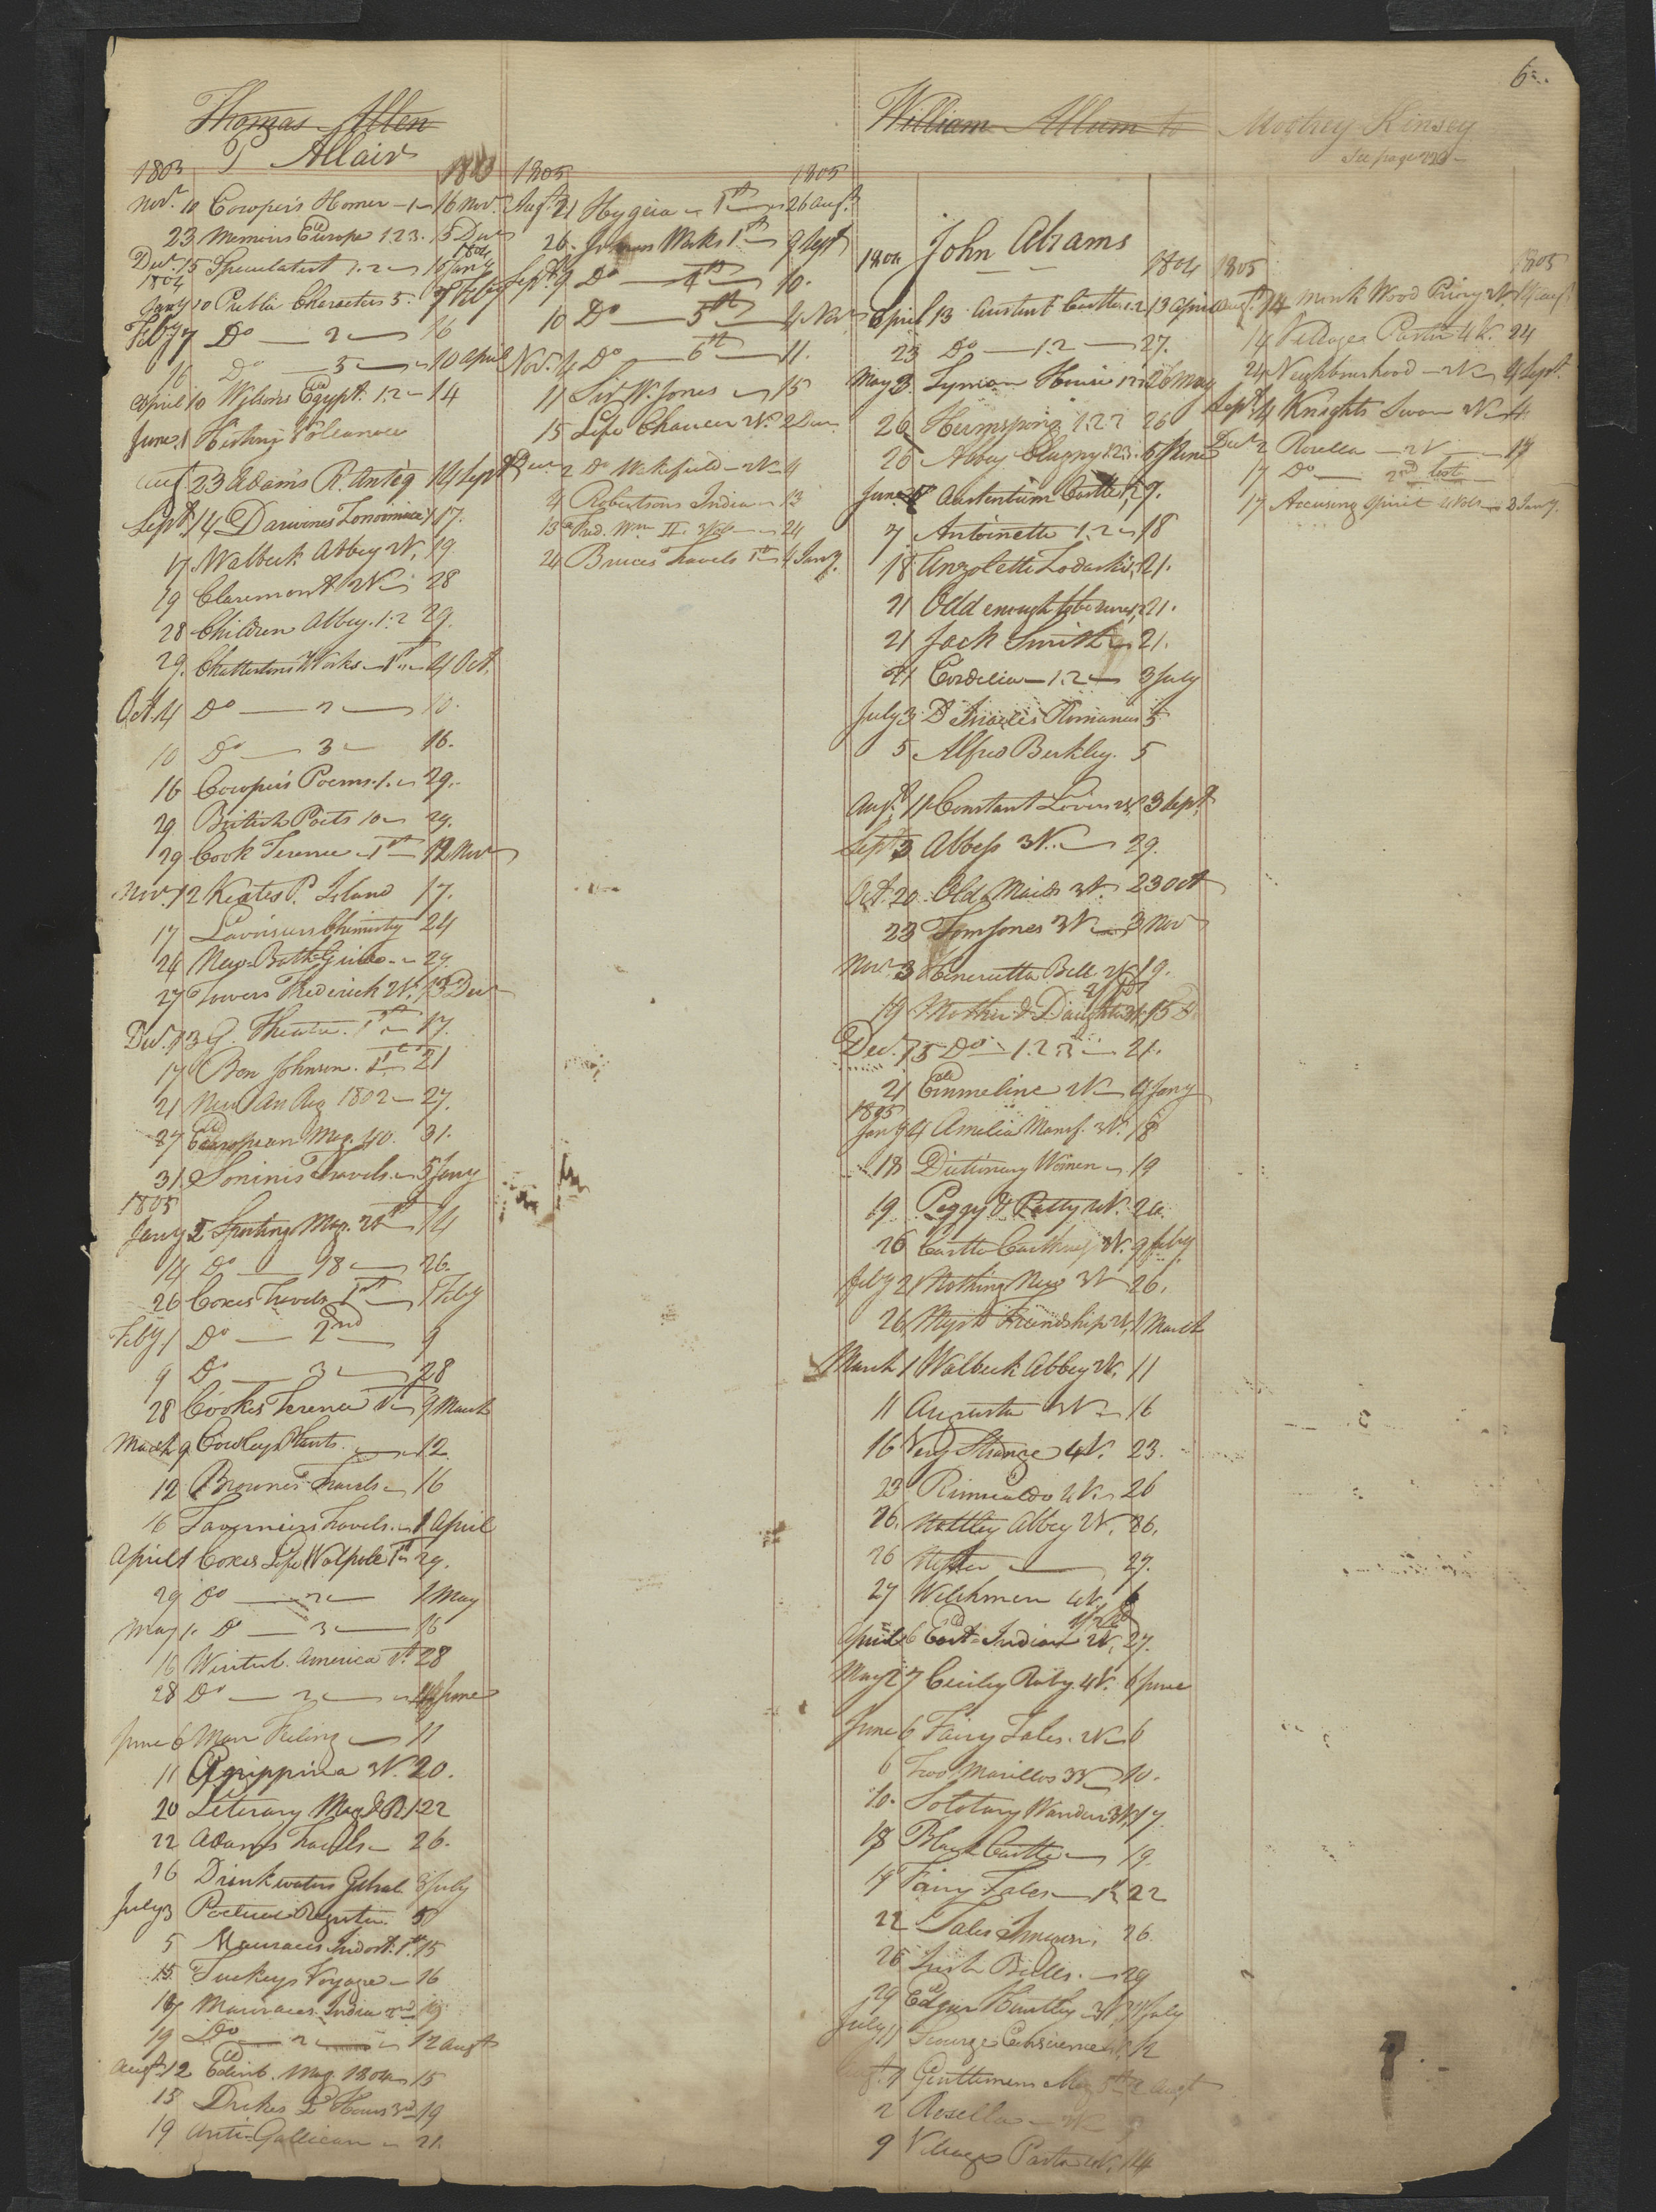 6
Thomas Allen
P Allair
1803 1803
Novr. 10 Cowper's Homer 1 16 Novr.
23 Memoirs Europe 1.2.3. 5 Decr
Decr. 15 1.2 10 Jany 1804
1804
Jany 10 Public Characters 5. 7 Feby
Feby 7 Do 2 16
16 Do 3 10 April
April 10 Wilsons Egypt. 1.2 14
June 1 History Volcanoes
Augt 23 Adams R. Antiq 14 Sept
Sept. 14 Darwins Zoonomia 1 17.
17 Walbeck Abbey 2V. 19
19 Claremont 2V. 28
28 Children Abbey. 1.2 29.
29. Chattertons Works 1st 4 Oct.
Oct. 4 Do 2 10.
10 Do 3 16.
16 Cowper's Poems. 1. 29.
29 British Poets 10 29.
29 Cook Terence 1st 12 Novr
Novr. 12 Keates P. Island 17.
17 Lavoisiers Chimistry 24
24 New Bath Guide 27.
27 Towers Frederick 2V. 13 Decr
Decr. 13 G. Theatre. 1st 17.
17 Ben Johnson. 1st 21
21 New An Reg 1802 27.
27 European Mag. 40. 31.
31 Soninis Travels. 5 Jany
1805
Jany 5 Sporting Mag. 14
14 Do 18 26.
26 Coxes Travels 1st 1 Feby
Feby 1 Do 2nd 9
9 Do 3 28
28 Cookes Terence 1st 9 March
March 9 Cowley Plants. 12.
12 Brownes Travels 16
16 Taverniers Travels. 1 April
April 1 Coxes Life Walpole 1st 29.
29 Do 2 1 May
May 1. Do 3 16
16 Wintrb. America 1st 28
28 Do 2 June
June 6 Man Feeling 11
11 Agrippina 3V. 20.
20 Literary Mag & R 1 22
22 Adams Travels 26.
26 Drinkwaters Gibral. 3 July
July 3 Poetical Register. 5
5 Maurices Indost. 1st 15
15 Tuckeys Voyage 16
16 Maurices India 2nd 19
19 Do 2 12 Augt
Augt 12 Edinb. Mag. 1804 15
15 Drakes L Hours 3rd 19
19 Anti-Gallican 21.
1805 1805
Augt. 21 Hygeia 1st 26 Augt.
26. Works 1st 9 Sept
Sept. 9 Do 4th 10.
10 Do 5th 4 Novr
Novr. 4 Do 6th 11.
11 Sir W. Jones 15
15 Life Chaucer 2 Decr
Decr 2 Do Wakefield 2V 4
4 Robertsons India 13
13 Pred. Wm II. 24
24 Bruces Travels 1st 4 Jany.
William Allum to Moghey Kinsey
See page 222
John Abrams
1804 1804
April 13 Austent Castle 1.2 13 April
23 Do 1.2 27.
May 3 Lyman House 26 May
26 Hermsprong 1.2.3 26
26 Abbey Clugny 1.2.3. 5 June
June Austentium Castle 1. 7.
7 Antoinette 1.2 18
18 Anzoletti Zadaski 21.
21 Odd enough to be sure 21.
21 Jack Smith 21.
21 Cordelia 1.2 3 July
July 3 D Israelis Romances 5
5 Alfred Berkley. 5
Augt. 11 Constant Lover 2V. 3 Sept.
Sept 3 Abbess 3V. 29.
Oct. 20 Old Maids 3V. 23 Oct
23 Tom Jones 3V 3 Nov
Novr. 3 Henerietta Bell 2V 19.
19 Mother & Daughter 3V. 15 D
Dec. 15 Do 1.2.3 21.
21 Emmeline 2V 4 Jany
1805
Jany 4 Amelia Mansf. 3V. 18
18 Dictionary Women 19
19 Peggy & Patty 2V. 26.
26 Castle Caithness 3V. 9 Feby
Feby 21 Nothing New 3V 26.
26 Myst Friendship 2V. 1 March
March 1 Walbeck Abbey 2V. 11
11 Augusta 3V 16
16 Very Strange 4V. 23.
23 Rimualdo 4V. 26
26. Nettley Abbey 2V. 26.
26 Hester 27.
27 Welchmen 4V. 6
April 6 East-Indian 2V. 27.
May 27 Cecily Raby. 4V. 6 June
June 6 Fairy Tales. 2V 6
6 Two Marillos 3V 10.
10. Solotary Wanderer 3V. 17.
18 Black Castle 19.
19 Fairy Tales 1st 22
22 Tales Imagery 26.
26 Irish Bulls. 29
29 Edgar Huntley 3V 11 July
July 11 Scourge Conscience 4V. 12
Augt. 1 Gentlemens Mag 2 Augt
2 Rosella 2V 9
9 Villages Pastor 4V. 14
1805 1805
Augt. 14 Monk Wood Priory 2V 14 Augt
14 Villages Pastor 4V. 24
24 Neighbourhood 2V 4 Sept.
Sept. 4 Knights Swan 2V 4
Decr 2 Rosella 2V 17
17 Do 2nd lost
17 Accusing Spirit 4 Vols 3 Jany.